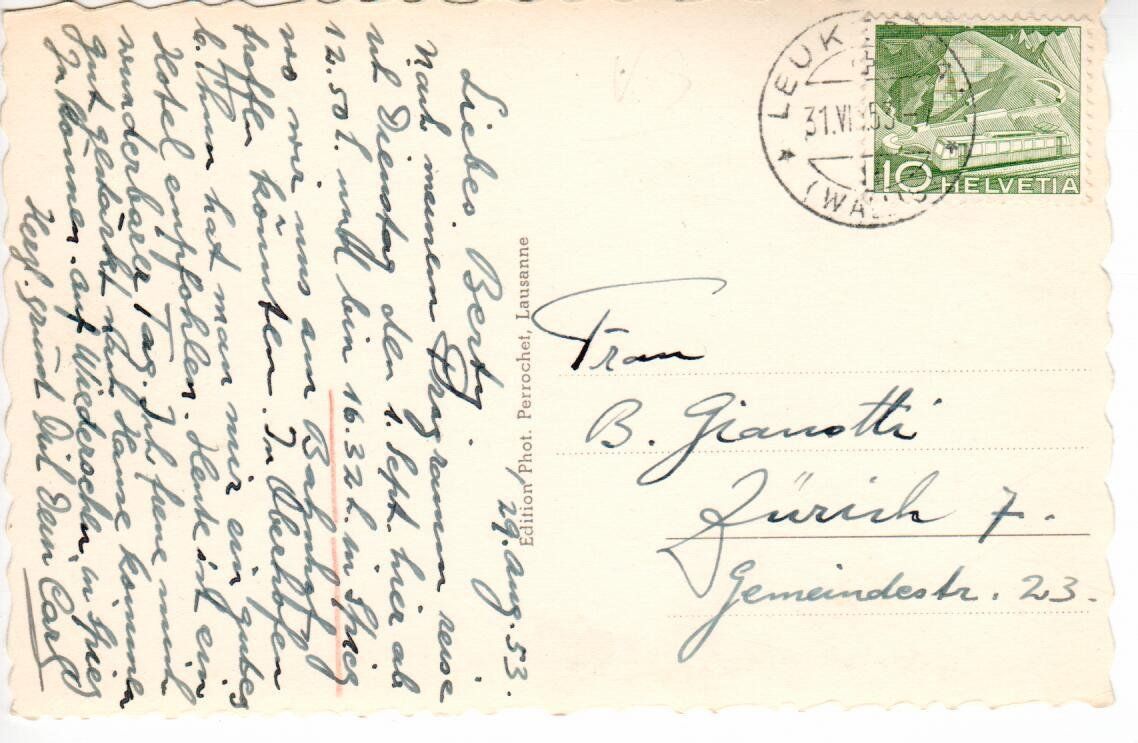 29. Aug. 53.
Liebes Berty,
Nach meinem Programm reise
ich Dienstag den 1. Sept. hier ab
12.50 h. und bin 16.32 h. in Spiez
wo wir uns am Bahnhof
treffen könnten. In Oberhofen
b. Thun hat man mir ein gutes
Hotel empfohlen. Heute ist ein
wunderbarer Tag. Ich freue mich
gut gestärkt nach Hause kommen
zu können. auf Wiedersehen in Spiez
Herzl. grüsst Dich Dein Carlo
Edition Phot. Perrochet, Lausanne
LEUK
31.VIII.53
(WALLIS)
10 HELVETIA
Frau
B. Gianotti
Zürich 7.
Gemeindestr. 23.